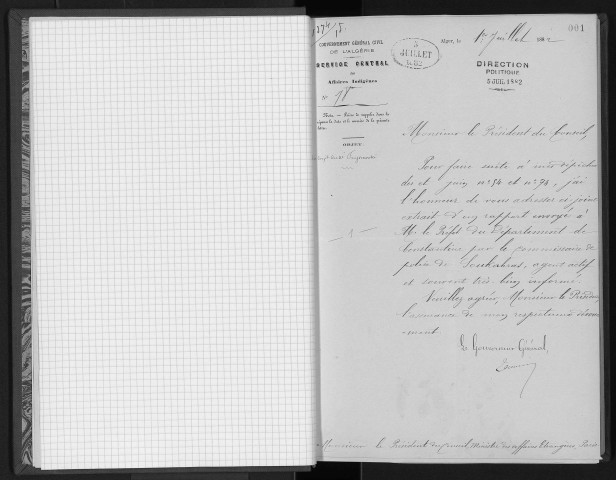 001
1274
GOUVERNEMENT GÉNÉRAL CIVIL
DE L'ALGÉRIE
SERVICE CENTRAL
DES
Affaires Indigènes
N°
OBJET
5
JUILLET
Alger, le 1er Juillet 1882
DIRECTION
POLITIQUE
5 JUIL 1882
Monsieur le Président du Conseil,
Pour faire suite à mes dépêches
des et juin n° 54 et n° 74, j'ai
l'honneur de vous adresser ci-joint
extrait d'un rapport envoyé à
M. le Préfet du Département de
Constantine par le commissaire de
police de Soukahras, agent actif
et souvent très bien informé.
Veuillez agréer, Monsieur le Président,
l'assurance de mon respectueux dévoue-
ment.
Le Gouverneur Général,
Monsieur le Président du Conseil, Ministre des affaires Étrangères, Paris